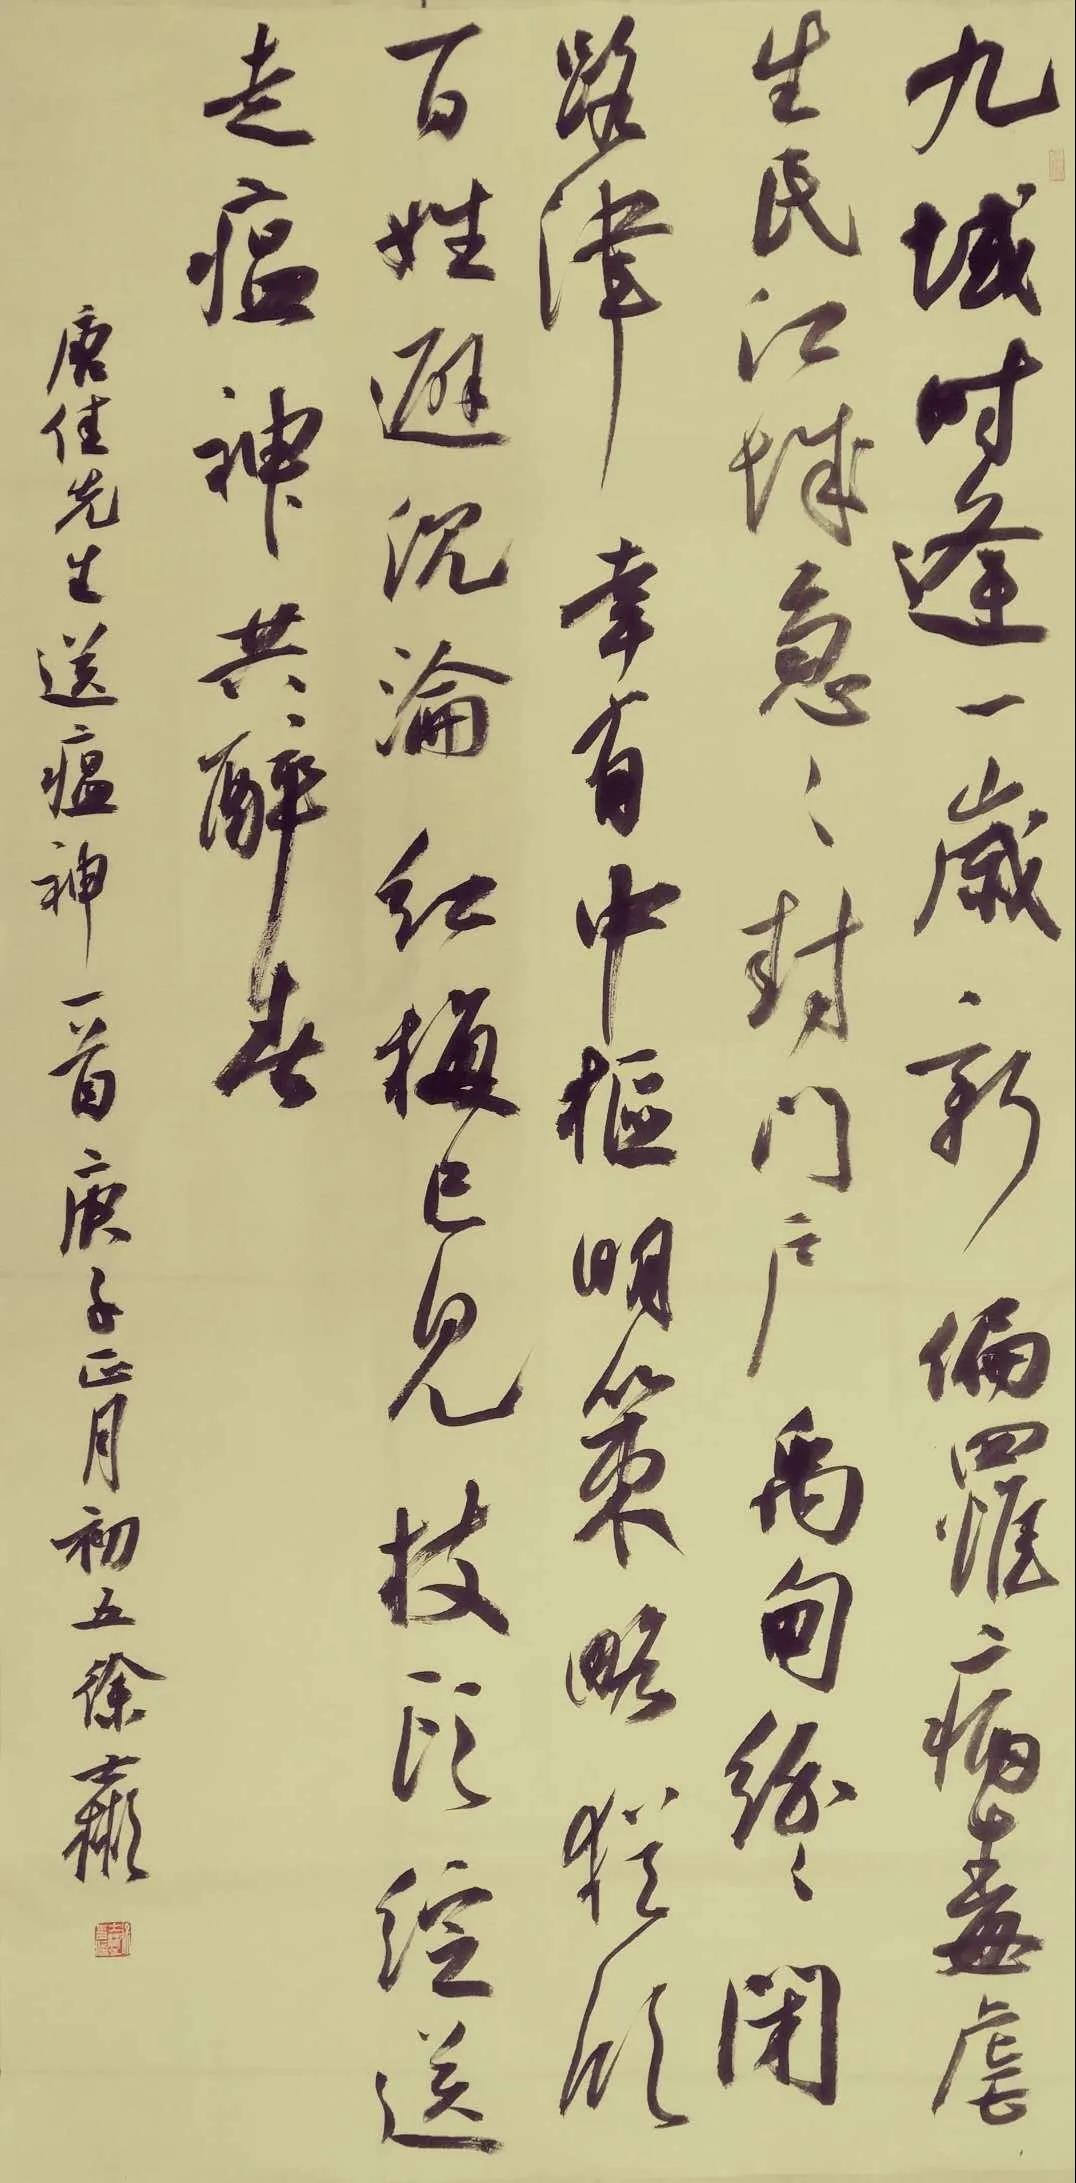 九域时逢一岁新偏罹病毒虐
生民江城急々封门户禹甸纷々闭
路津幸有中枢明策略犹欣
百姓避沉沦红梅已见枝头绽送
走瘟神共醉春
唐佳先生送瘟神一首庚子正月初五徐